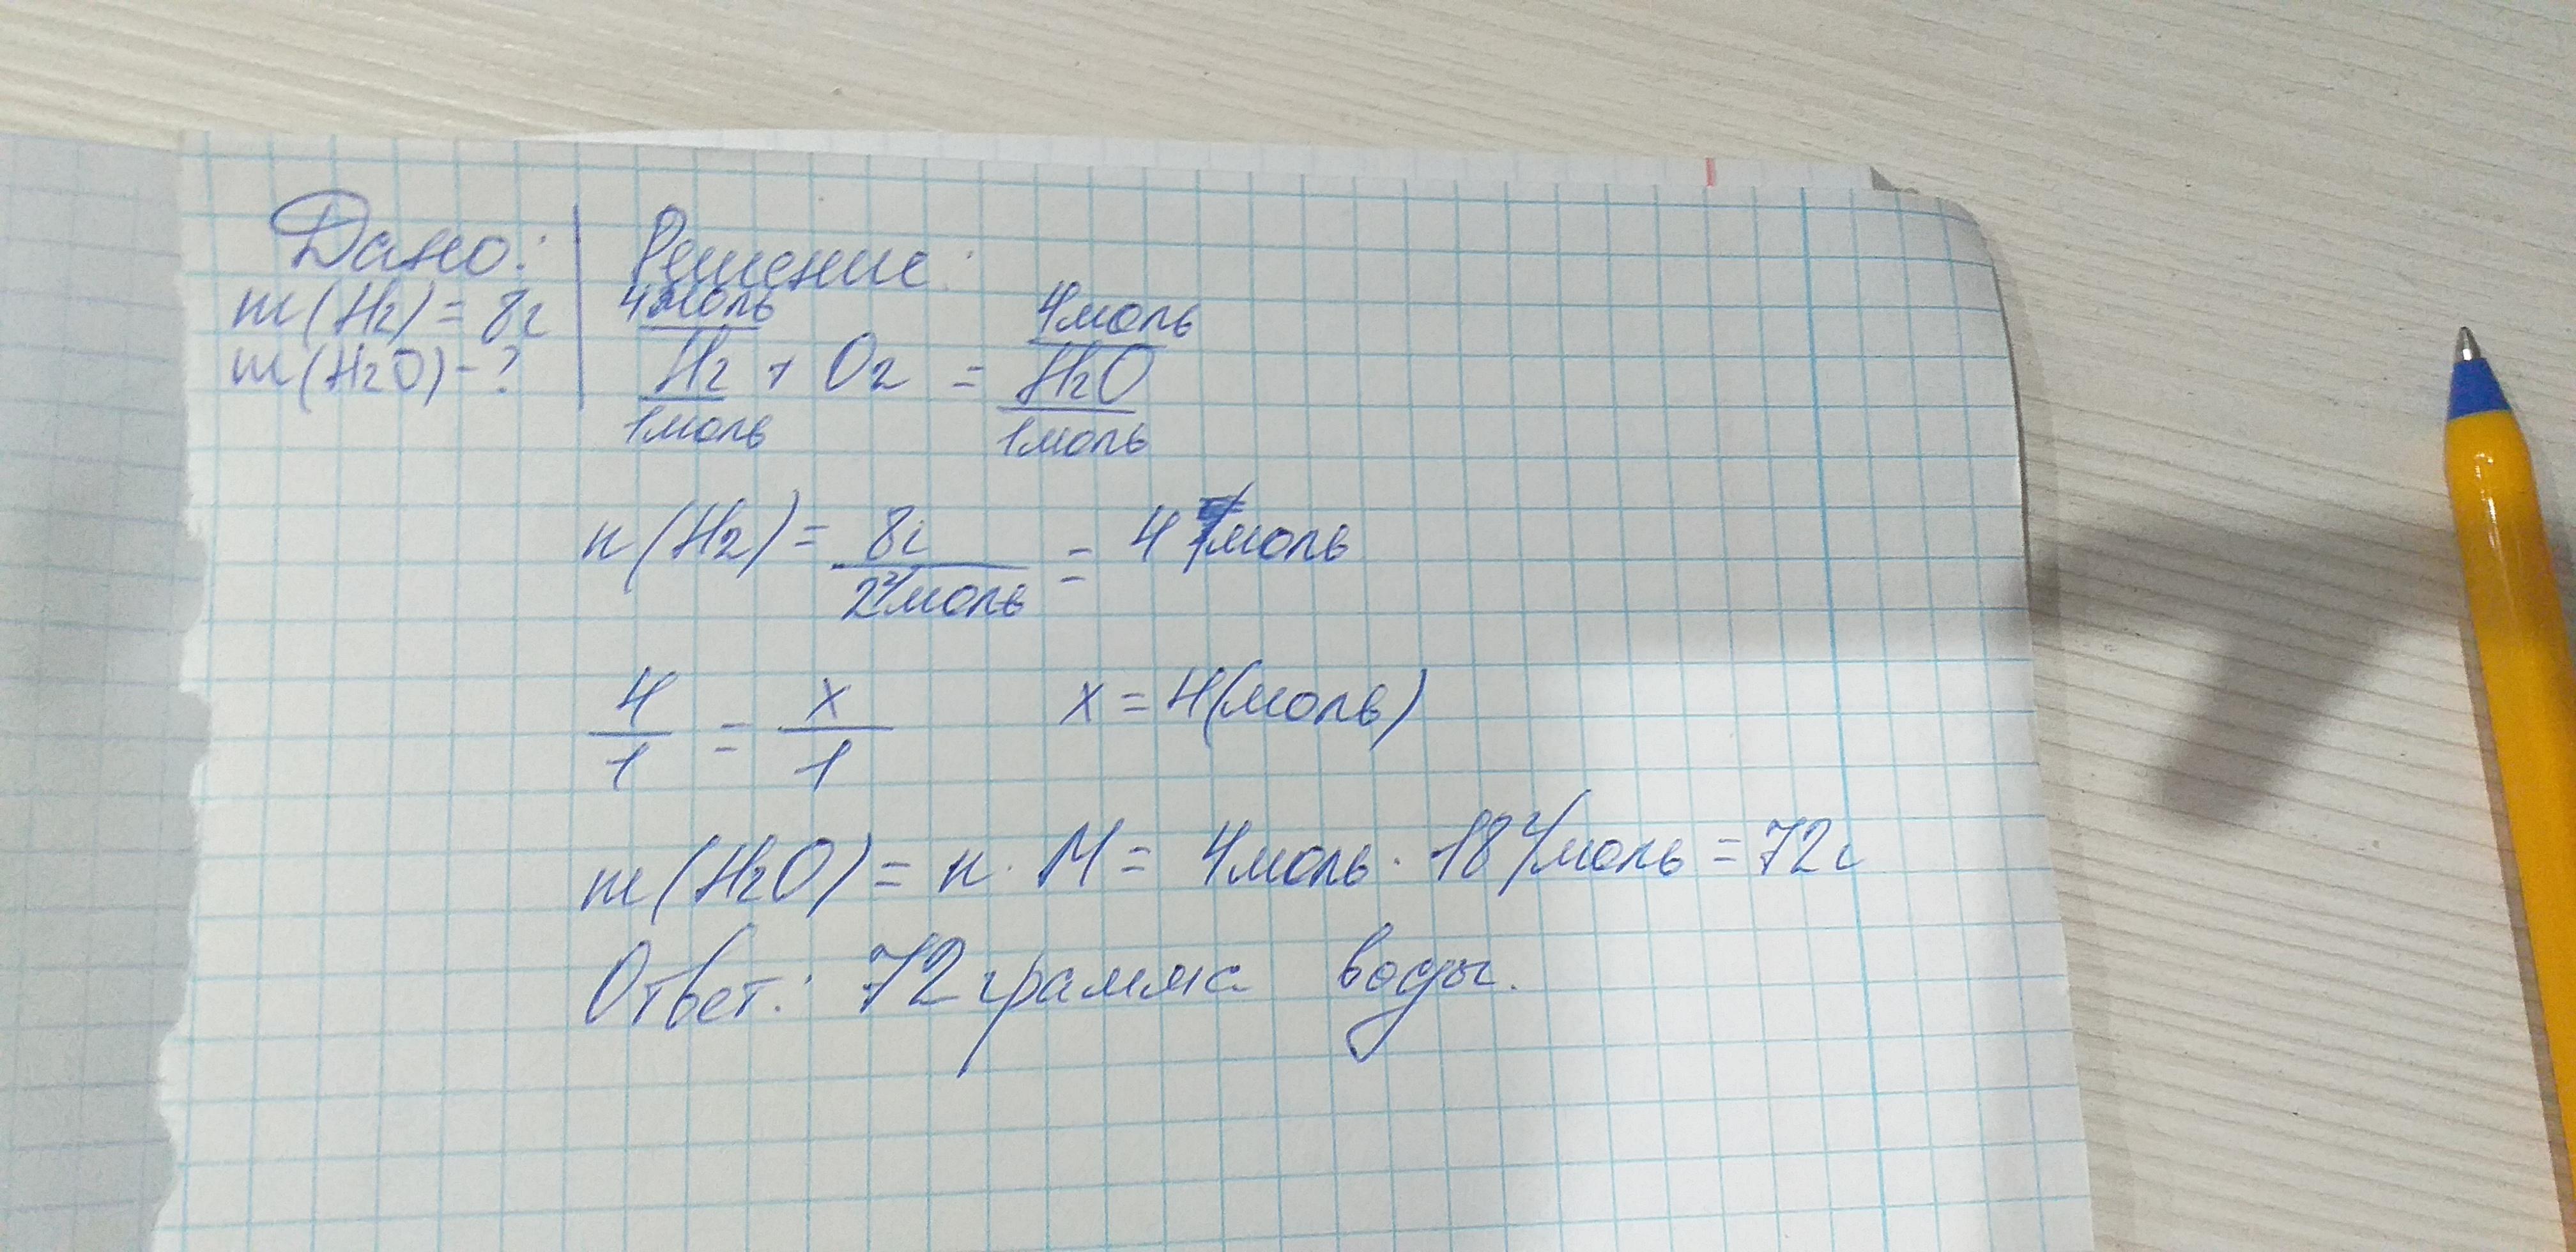 Дано:
m(H2) = 8г
m(H2O) - ?
Решение:
4моль 4моль
H2 + O2 = H2O
1моль 1моль
n(H2) = 8г / 2г/моль = 4 моль
4/1 = x/1 x = 4(моль)
m(H2O) = n · M = 4моль · 18г/моль = 72г
Ответ: 72 грамма воды.